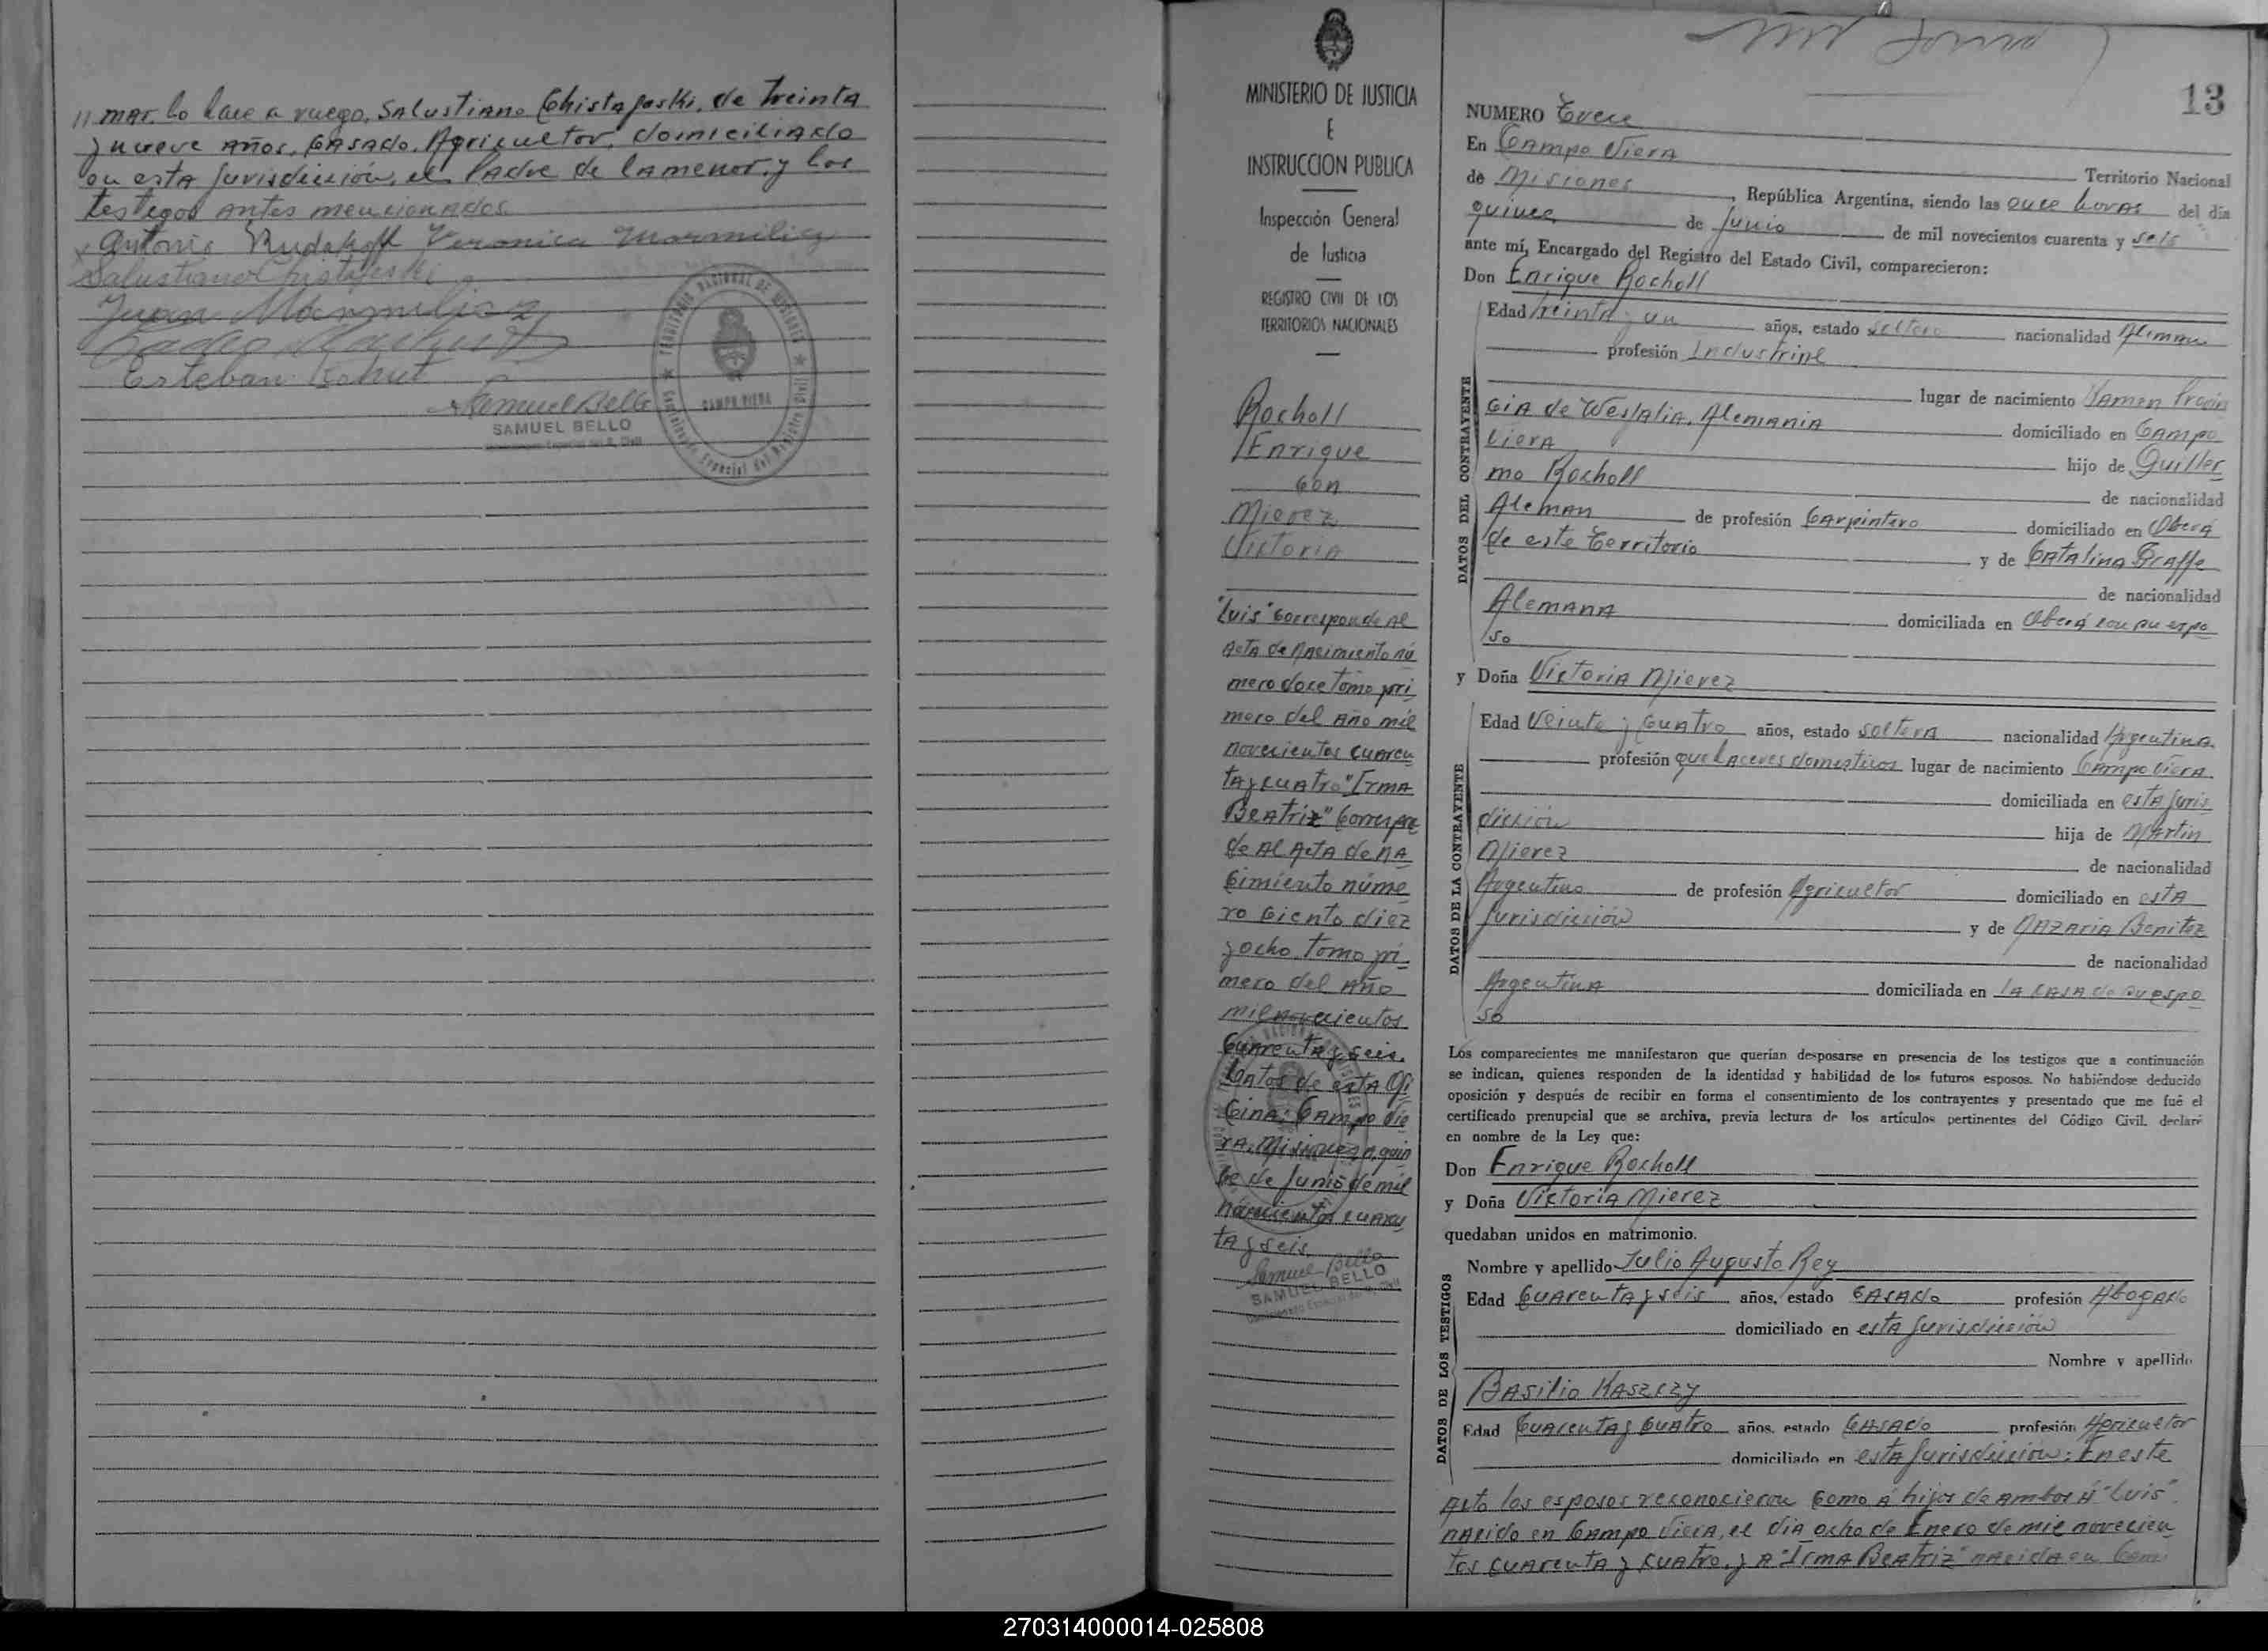 // mar. lo hace a ruego, Salustiano Chistafoski, de treinta
y nueve años, Casado, Agricultor, domiciliado
en esta jurisdicción, el Padre de la menor, y los
testigos antes mencionados.
x Antonio Rudakoff Veronica Marmilicz
Salustiano
Juan Marmilicz
Esteban Kohut
Samuel Bello
SAMUEL BELLO
TERRITORIO NACIONAL DE MISIONES
CAMPO VIERA
MINISTERIO DE JUSTICIA
E
INSTRUCCION PUBLICA
Inspección General
de Justicia
REGISTRO CIVIL DE LOS
TERRITORIOS NACIONALES
Rocholl
Enrique
con
Mierez
Victoria
"Luis" corresponde al
acta de nacimiento nú
mero doce tomo pri
mero del año mil
novecientos cuaren
ta y cuatro "Irma
Beatriz" correspon
de al acta de na
cimiento núme
ro ciento diez
y ocho tomo pri
mero del año
mil novecientos
cuarenta y seis.
Datos de esta ofi
cina. Campo Vie
ra, Misiones, quin
ce de Junio de mil
novecientos cuaren
ta y seis.
Samuel Bello
SAMUEL BELLO
13
NUMERO Trece
En Campo Viera
Territorio Nacional
de Misiones, República Argentina, siendo las once horas del día
quince de Junio de mil novecientos cuarenta y seis
ante mí, Encargado del Registro del Estado Civil, comparecieron:
Don Enrique Rocholl
DATOS DEL CONTRAYENTE
Edad treinta y un años, estado soltero nacionalidad Aleman
profesión Industrial
lugar de nacimiento Kamen Provin
cia de Wesfalia, Alemania domiciliado en Campo
Viera hijo de Guiller
mo Rocholl de nacionalidad
Aleman de profesión Carpintero domiciliado en Oberá
de este territorio y de Catalina
de nacionalidad
Alemana domiciliada en Oberá con su espo
so
y Doña Victoria Mierez
DATOS DE LA CONTRAYENTE
Edad Veinte y cuatro años, estado soltera nacionalidad Argentina
profesión quehaceres domesticos lugar de nacimiento Campo Viera
domiciliada en esta juris
dicción hija de Martin
Mierez de nacionalidad
Argentino de profesión Agricultor domiciliado en esta
jurisdicción y de Nazaria Benitez
de nacionalidad
Argentina domiciliada en la casa de su espo
so
Los comparecientes me manifestaron que querían desposarse en presencia de los testigos que a continuación
se indican, quienes responden de la identidad y habilidad de los futuros esposos. No habiéndose deducido
oposición y después de recibir en forma el consentimiento de los contrayentes y presentado que me fué el
certificado prenupcial que se archiva, previa lectura de los artículos pertinentes del Código Civil, declaré
en nombre de la Ley que:
Don Enrique Rocholl
y Doña Victoria Mierez
quedaban unidos en matrimonio.
DATOS DE LOS TESTIGOS
Nombre y apellido Julio Augusto Rey
Edad Cuarenta y seis años, estado casado profesión Abogado
domiciliado en esta jurisdicción
Nombre y apellido
Basilio Kaszczy
Edad Cuarenta y cuatro años, estado casado profesión Agricultor
domiciliado en esta jurisdicción; En este
acto los esposos reconocieron como á hijos de ambos á "Luis"
nacido en Campo Viera, el dia ocho de Enero de mil novecien
tos cuarenta y cuatro, y a "Irma Beatriz" nacida en Cam
270314000014-025808